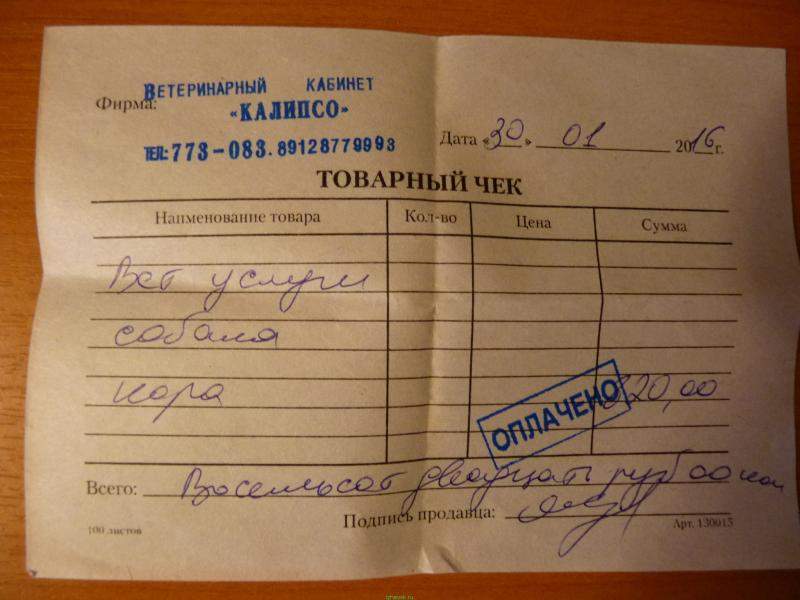 ВЕТЕРИНАРНЫЙ КАБИНЕТ
Фирма: «КАЛИПСО»
ТЕЛ: 773-083. 89128779993
Дата «30» 01 2016 г.
ТОВАРНЫЙ ЧЕК
Наименование товара Кол-во Цена Сумма
Вет услуги
собака
кора 820,00
ОПЛАЧЕНО
Всего: Восемьсот двадцать руб 00 коп
Подпись продавца:
100 листов Арт. 130015